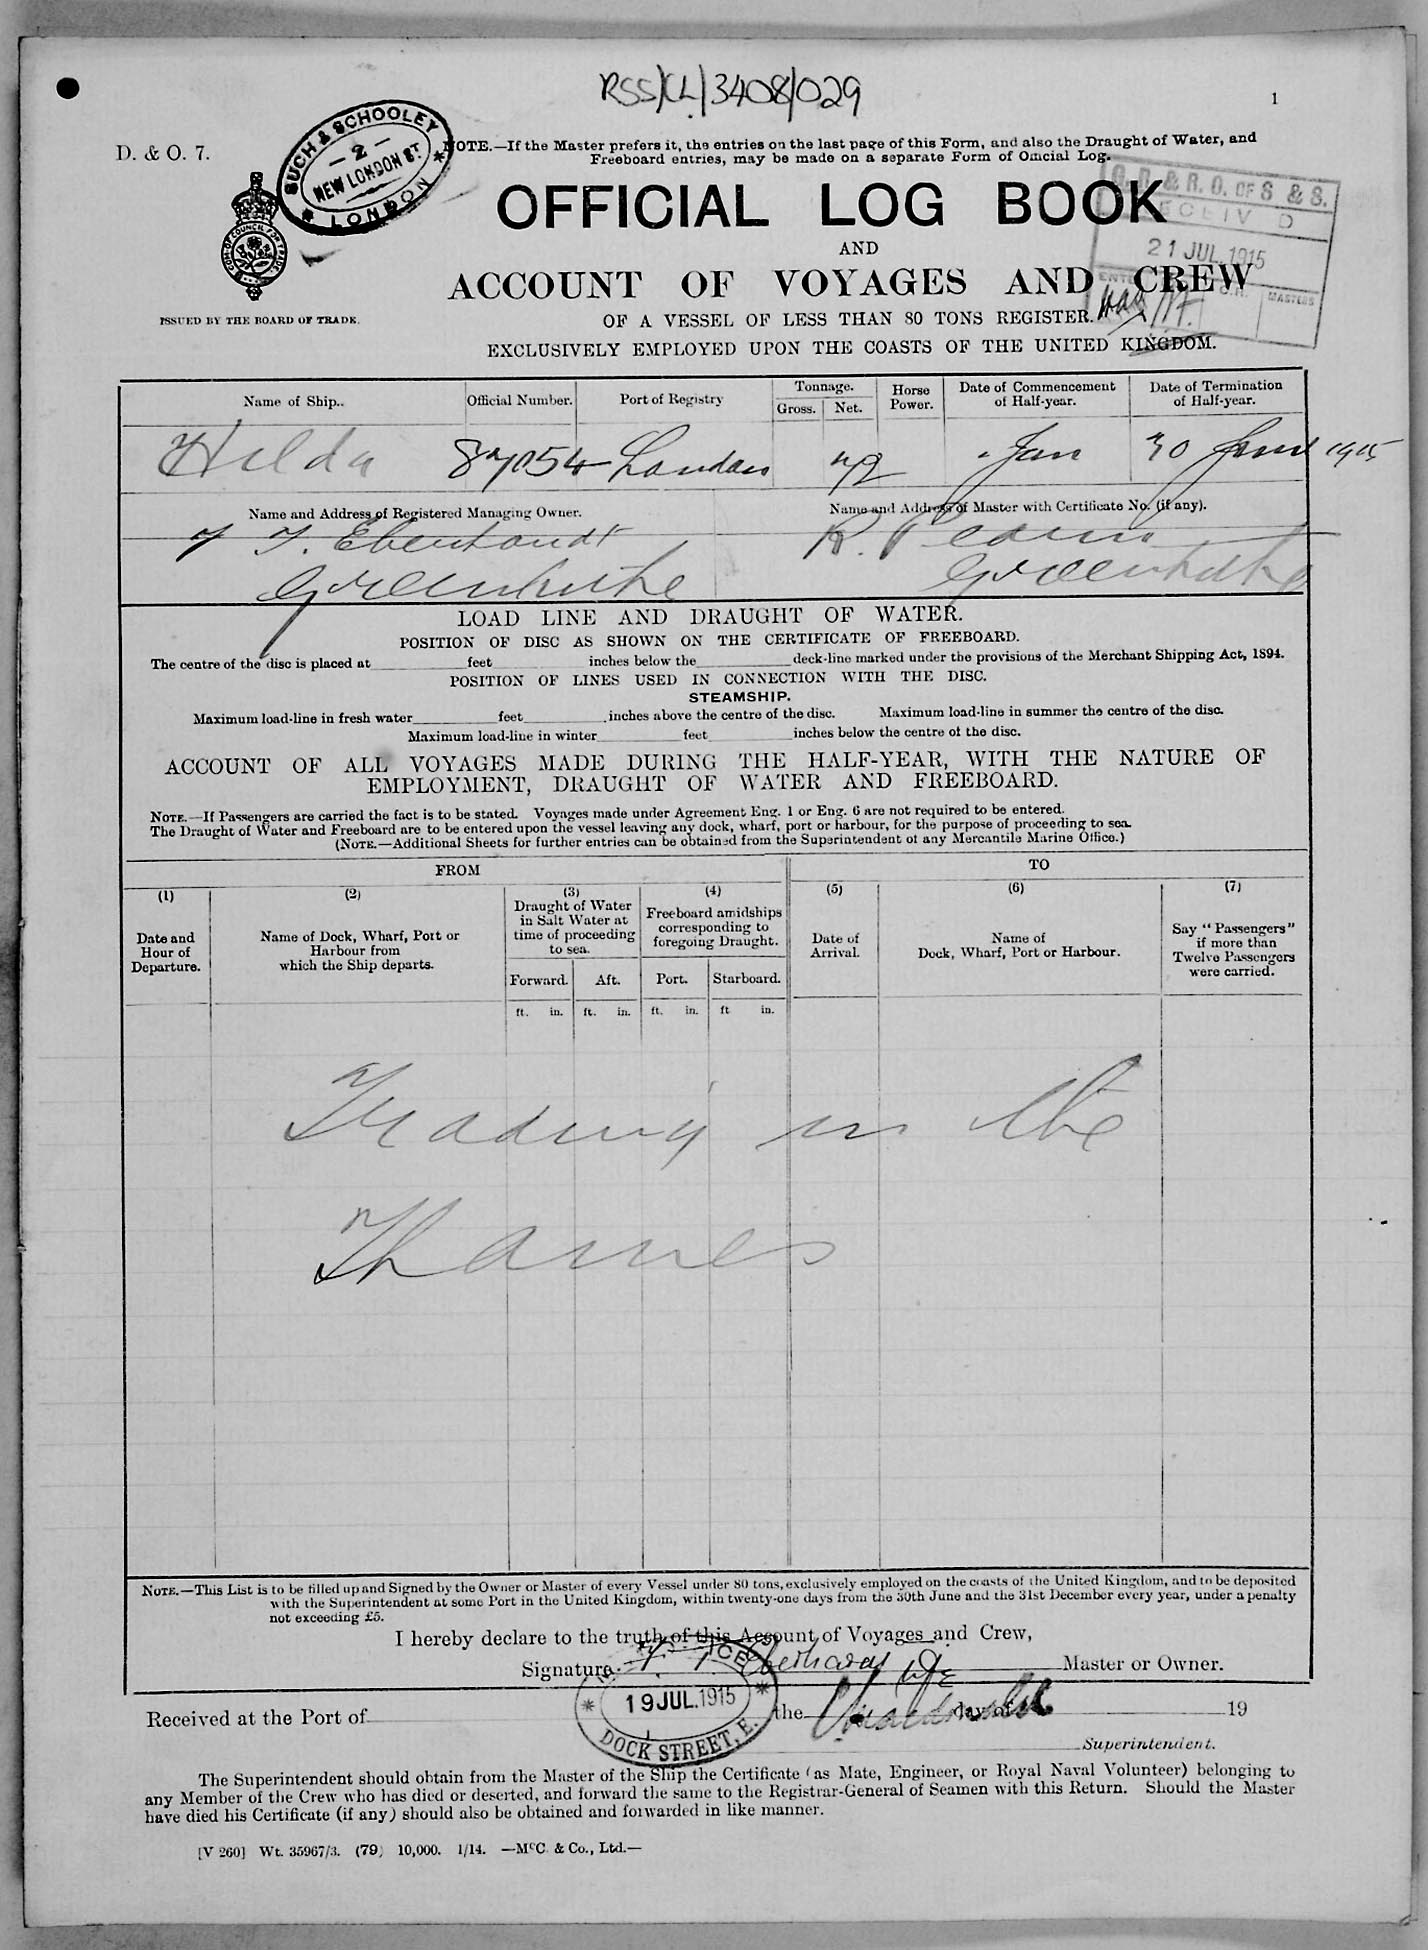 RSS/CL/3408/029
1
D. & O. 7.
SUCH & SCHOOLEY
- 2 -
NEW LONDON ST.
LONDON
NOTE.—If the Master prefers it, the entries on the last page of this Form, and also the Draught of Water, and
Freeboard entries, may be made on a separate Form of Official Log.
OFFICIAL LOG BOOK
G. R. & R. O. OF S. & S.
RECEIVED
21 JUL. 1915
MASTERS
AND
ACCOUNT OF VOYAGES AND CREW
ISSUED BY THE BOARD OF TRADE.
OF A VESSEL OF LESS THAN 80 TONS REGISTER.
EXCLUSIVELY EMPLOYED UPON THE COASTS OF THE UNITED KINGDOM.
Name of Ship.. Official Number. Port of Registry Tonnage. Gross. Net. Horse Power. Date of Commencement of Half-year. Date of Termination of Half-year.
Hilda 87054 London 72 Jan 30 June 1915
Name and Address of Registered Managing Owner. Name and Address of Master with Certificate No. (if any).
F. T. Eberhardt R.
Greenhithe Greenhithe
LOAD LINE AND DRAUGHT OF WATER.
POSITION OF DISC AS SHOWN ON THE CERTIFICATE OF FREEBOARD.
The centre of the disc is placed at feet inches below the deck-line marked under the provisions of the Merchant Shipping Act, 1894.
POSITION OF LINES USED IN CONNECTION WITH THE DISC.
STEAMSHIP.
Maximum load-line in fresh water feet inches above the centre of the disc. Maximum load-line in summer the centre of the disc.
Maximum load-line in winter feet inches below the centre of the disc.
ACCOUNT OF ALL VOYAGES MADE DURING THE HALF-YEAR, WITH THE NATURE OF
EMPLOYMENT, DRAUGHT OF WATER AND FREEBOARD.
NOTE.—If Passengers are carried the fact is to be stated. Voyages made under Agreement Eng. 1 or Eng. 6 are not required to be entered.
The Draught of Water and Freeboard are to be entered upon the vessel leaving any dock, wharf, port or harbour, for the purpose of proceeding to sea.
(NOTE.—Additional Sheets for further entries can be obtained from the Superintendent of any Mercantile Marine Office.)
FROM TO
(1) (2) (3) (4) (5) (6) (7)
Date and Hour of Departure.
Name of Dock, Wharf, Port or Harbour from which the Ship departs.
Draught of Water in Salt Water at time of proceeding to sea.
Freeboard amidships corresponding to foregoing Draught.
Date of Arrival.
Name of Dock, Wharf, Port or Harbour.
Say "Passengers" if more than Twelve Passengers were carried.
Forward. Aft. Port. Starboard.
ft. in. ft. in. ft. in. ft in.
Trading in the
Thames
NOTE.—This List is to be filled up and Signed by the Owner or Master of every Vessel under 80 tons, exclusively employed on the coasts of the United Kingdom, and to be deposited
with the Superintendent at some Port in the United Kingdom, within twenty-one days from the 30th June and the 31st December every year, under a penalty
not exceeding £5.
I hereby declare to the truth of this Account of Voyages and Crew,
Signature F. T. Eberhardt Master or Owner.
19 JUL. 1915
DOCK STREET, E.
Received at the Port of the day of 19
Superintendent.
The Superintendent should obtain from the Master of the Ship the Certificate (as Mate, Engineer, or Royal Naval Volunteer) belonging to
any Member of the Crew who has died or deserted, and forward the same to the Registrar-General of Seamen with this Return. Should the Master
have died his Certificate (if any) should also be obtained and forwarded in like manner.
[V 260] Wt. 35967/3. (79) 10,000. 1/14. —McC & Co., Ltd.—